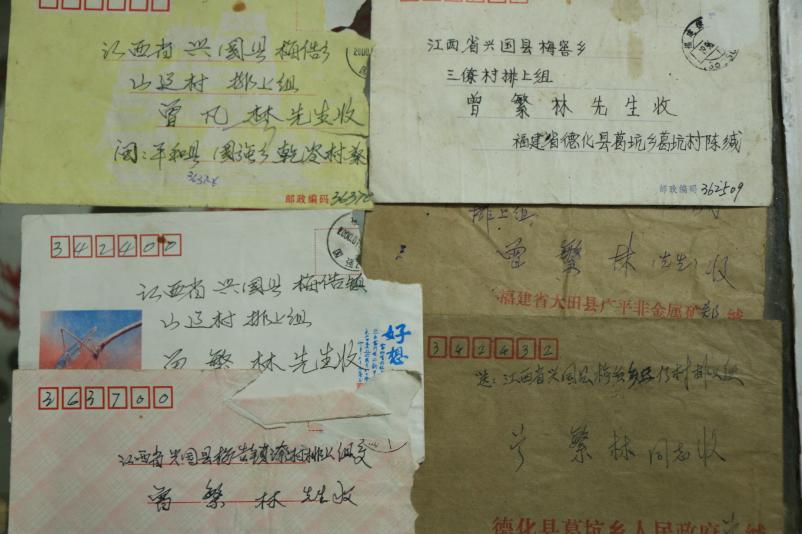 江西省兴国县梅
山辽村 排上组
曾凡林先生收
闽:平和县国强乡乾
363
邮政编码 3637
江西省兴国县梅窖乡
三僚村排上组
曾繁林先生收
福建省德化县葛坑乡葛坑村陈缄
邮政编码 362509
342400
江西省兴国县梅
山辽村排上组
曾繁林先生收
好想
排上组
曾繁林先生收
福建省大田县广平非金属矿 缄
363700
江西省兴国县梅
曾繁林先生收
342432
送:江西省兴国县梅
曾繁林同志收
德化县葛坑乡人民政府 缄